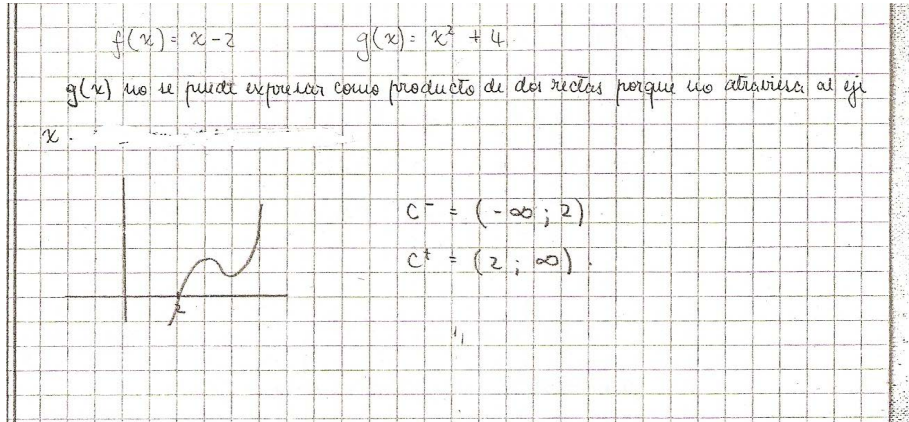 f(x) = x-2 g(x) = x² + 4.
g(x) no se puede expresar como producto de dos rectas porque no atraviesa al eje
x.
C⁻ = (-∞ ; 2)
C⁺ = (2 ; ∞).
2